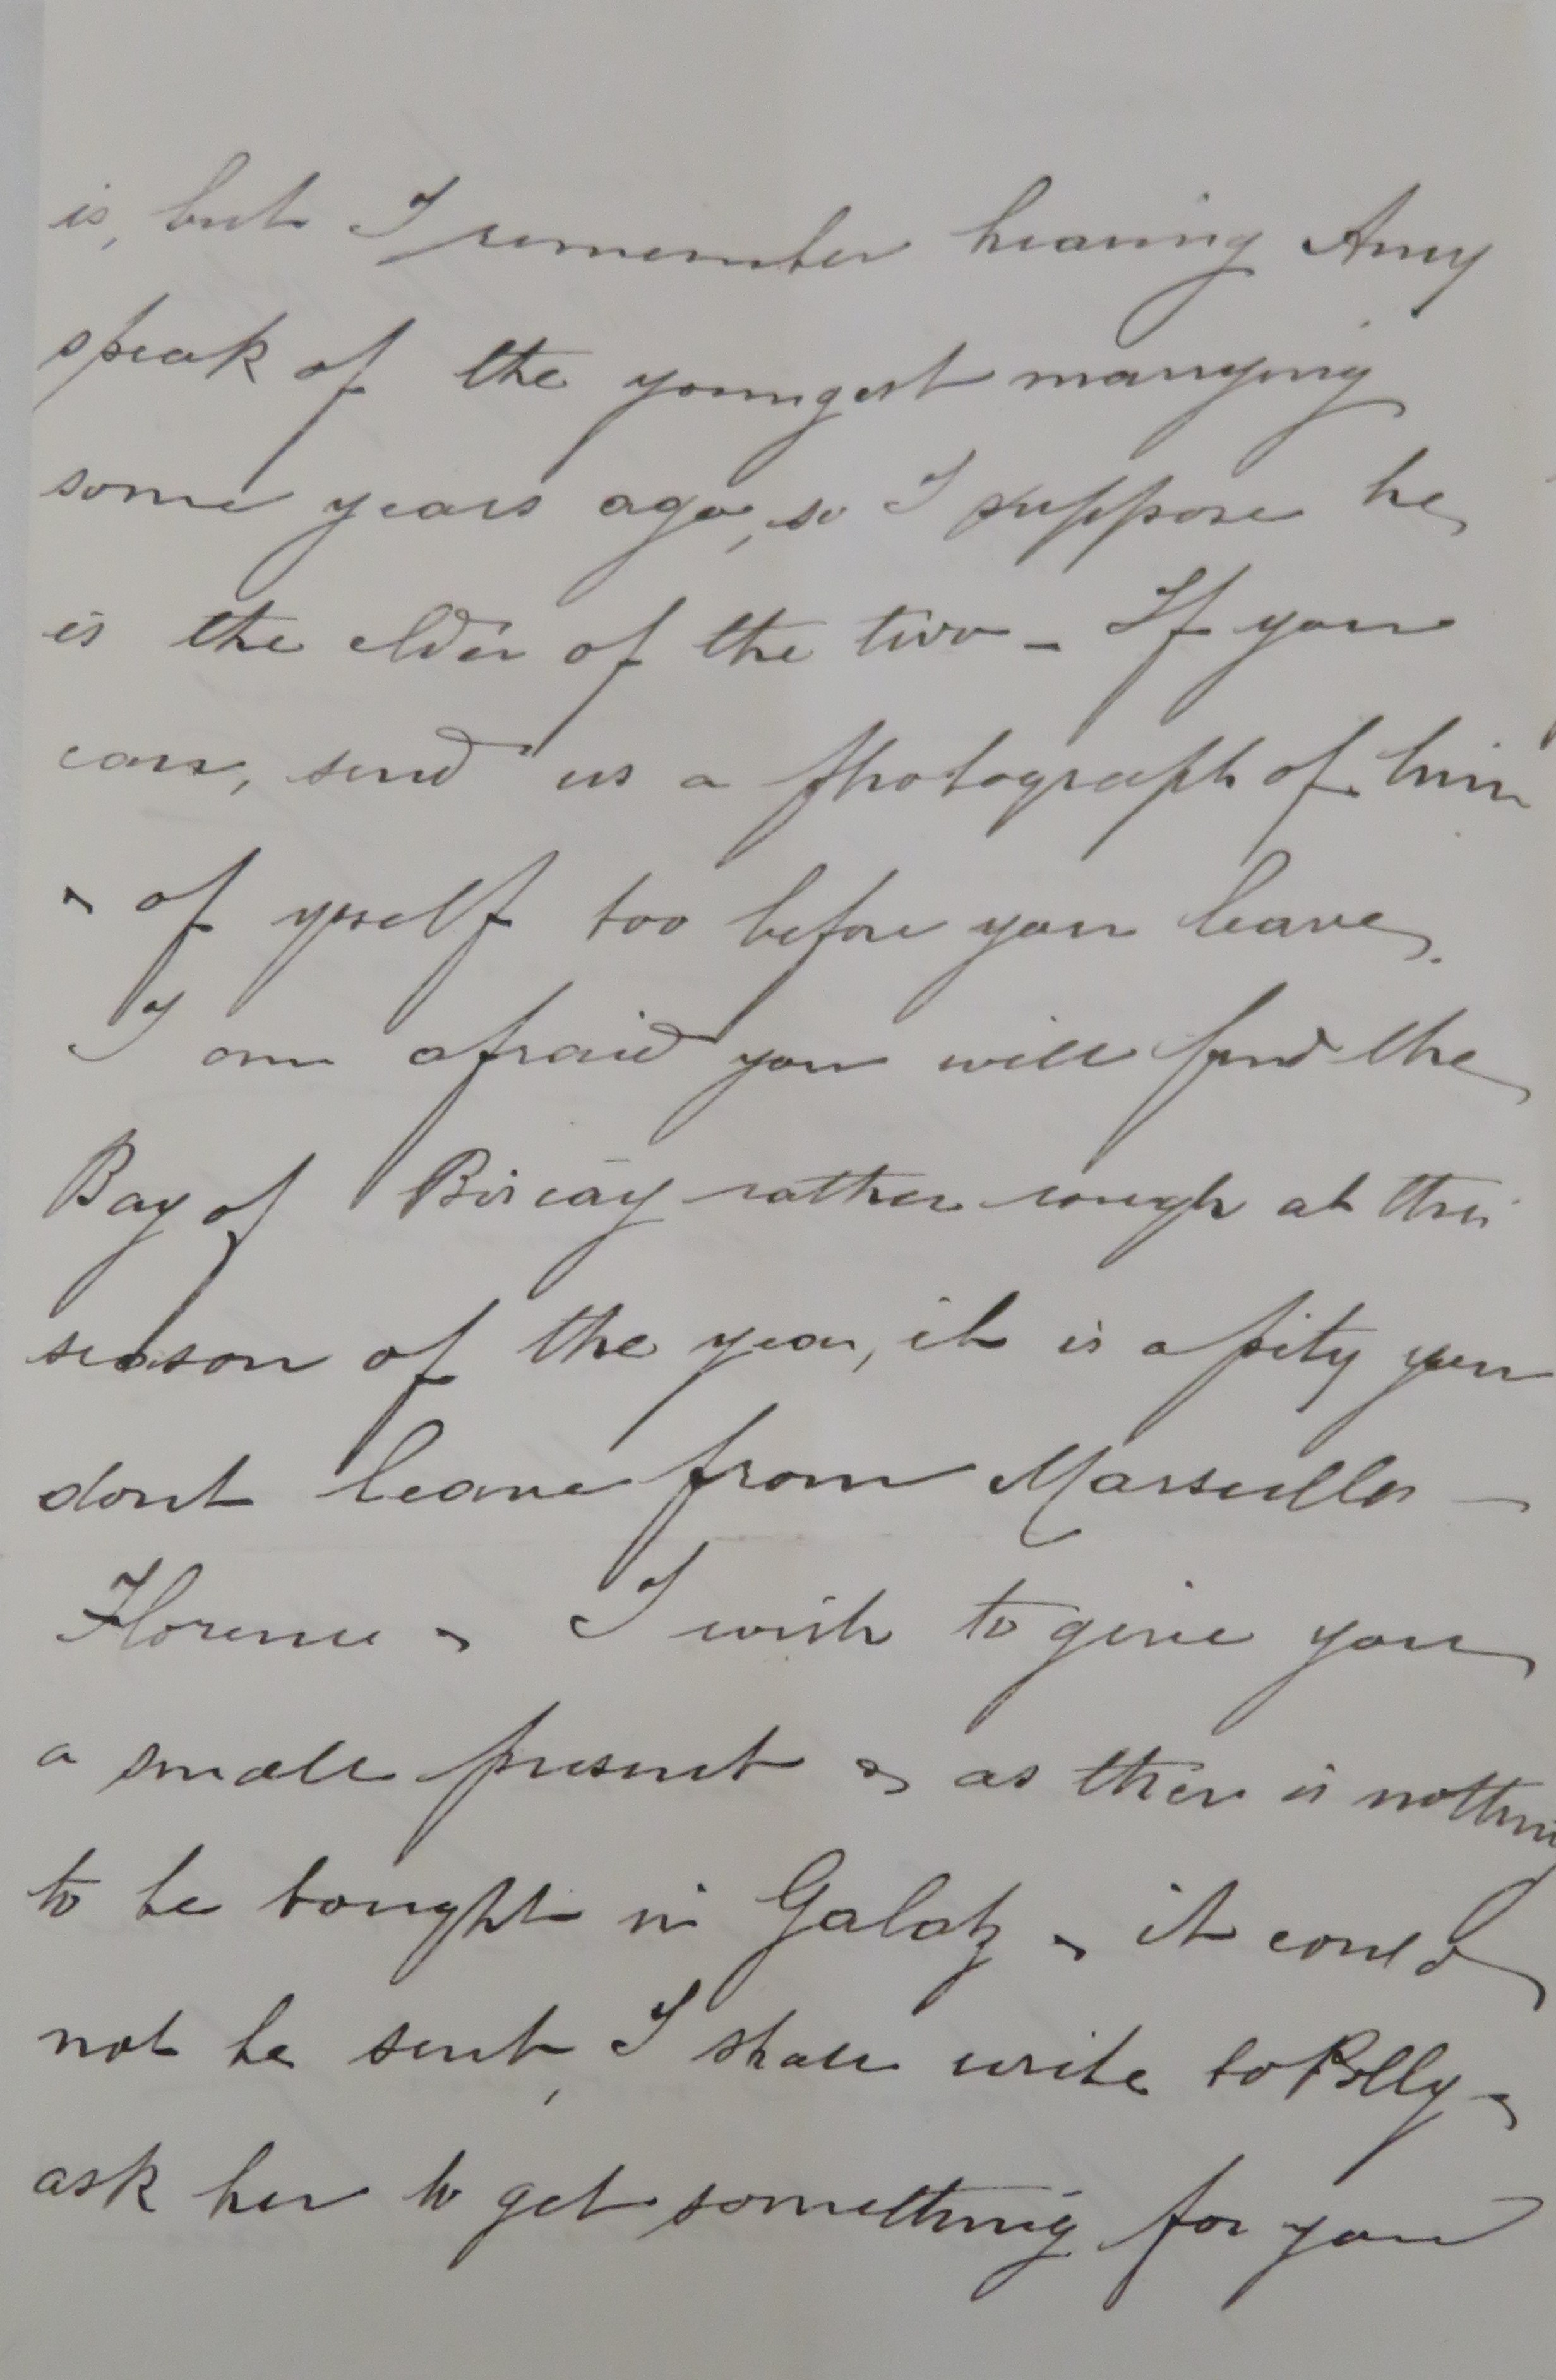 is, but I remember hearing Amy
speak of the youngest marrying
some years ago, so I suppose he
is the elder of the two - If you
can, send us a photograph of him
& of yrself too before you leave.
I am afraid you will find the
Bay of Biscay rather rough at this
season of the year, it is a pity you
dont leave from Marseilles -
Florence & I wish to give you
a small present & as there is nothing
to be bought in Galatz & it could
not be sent, I shall write to Polly &
ask her to get something for you